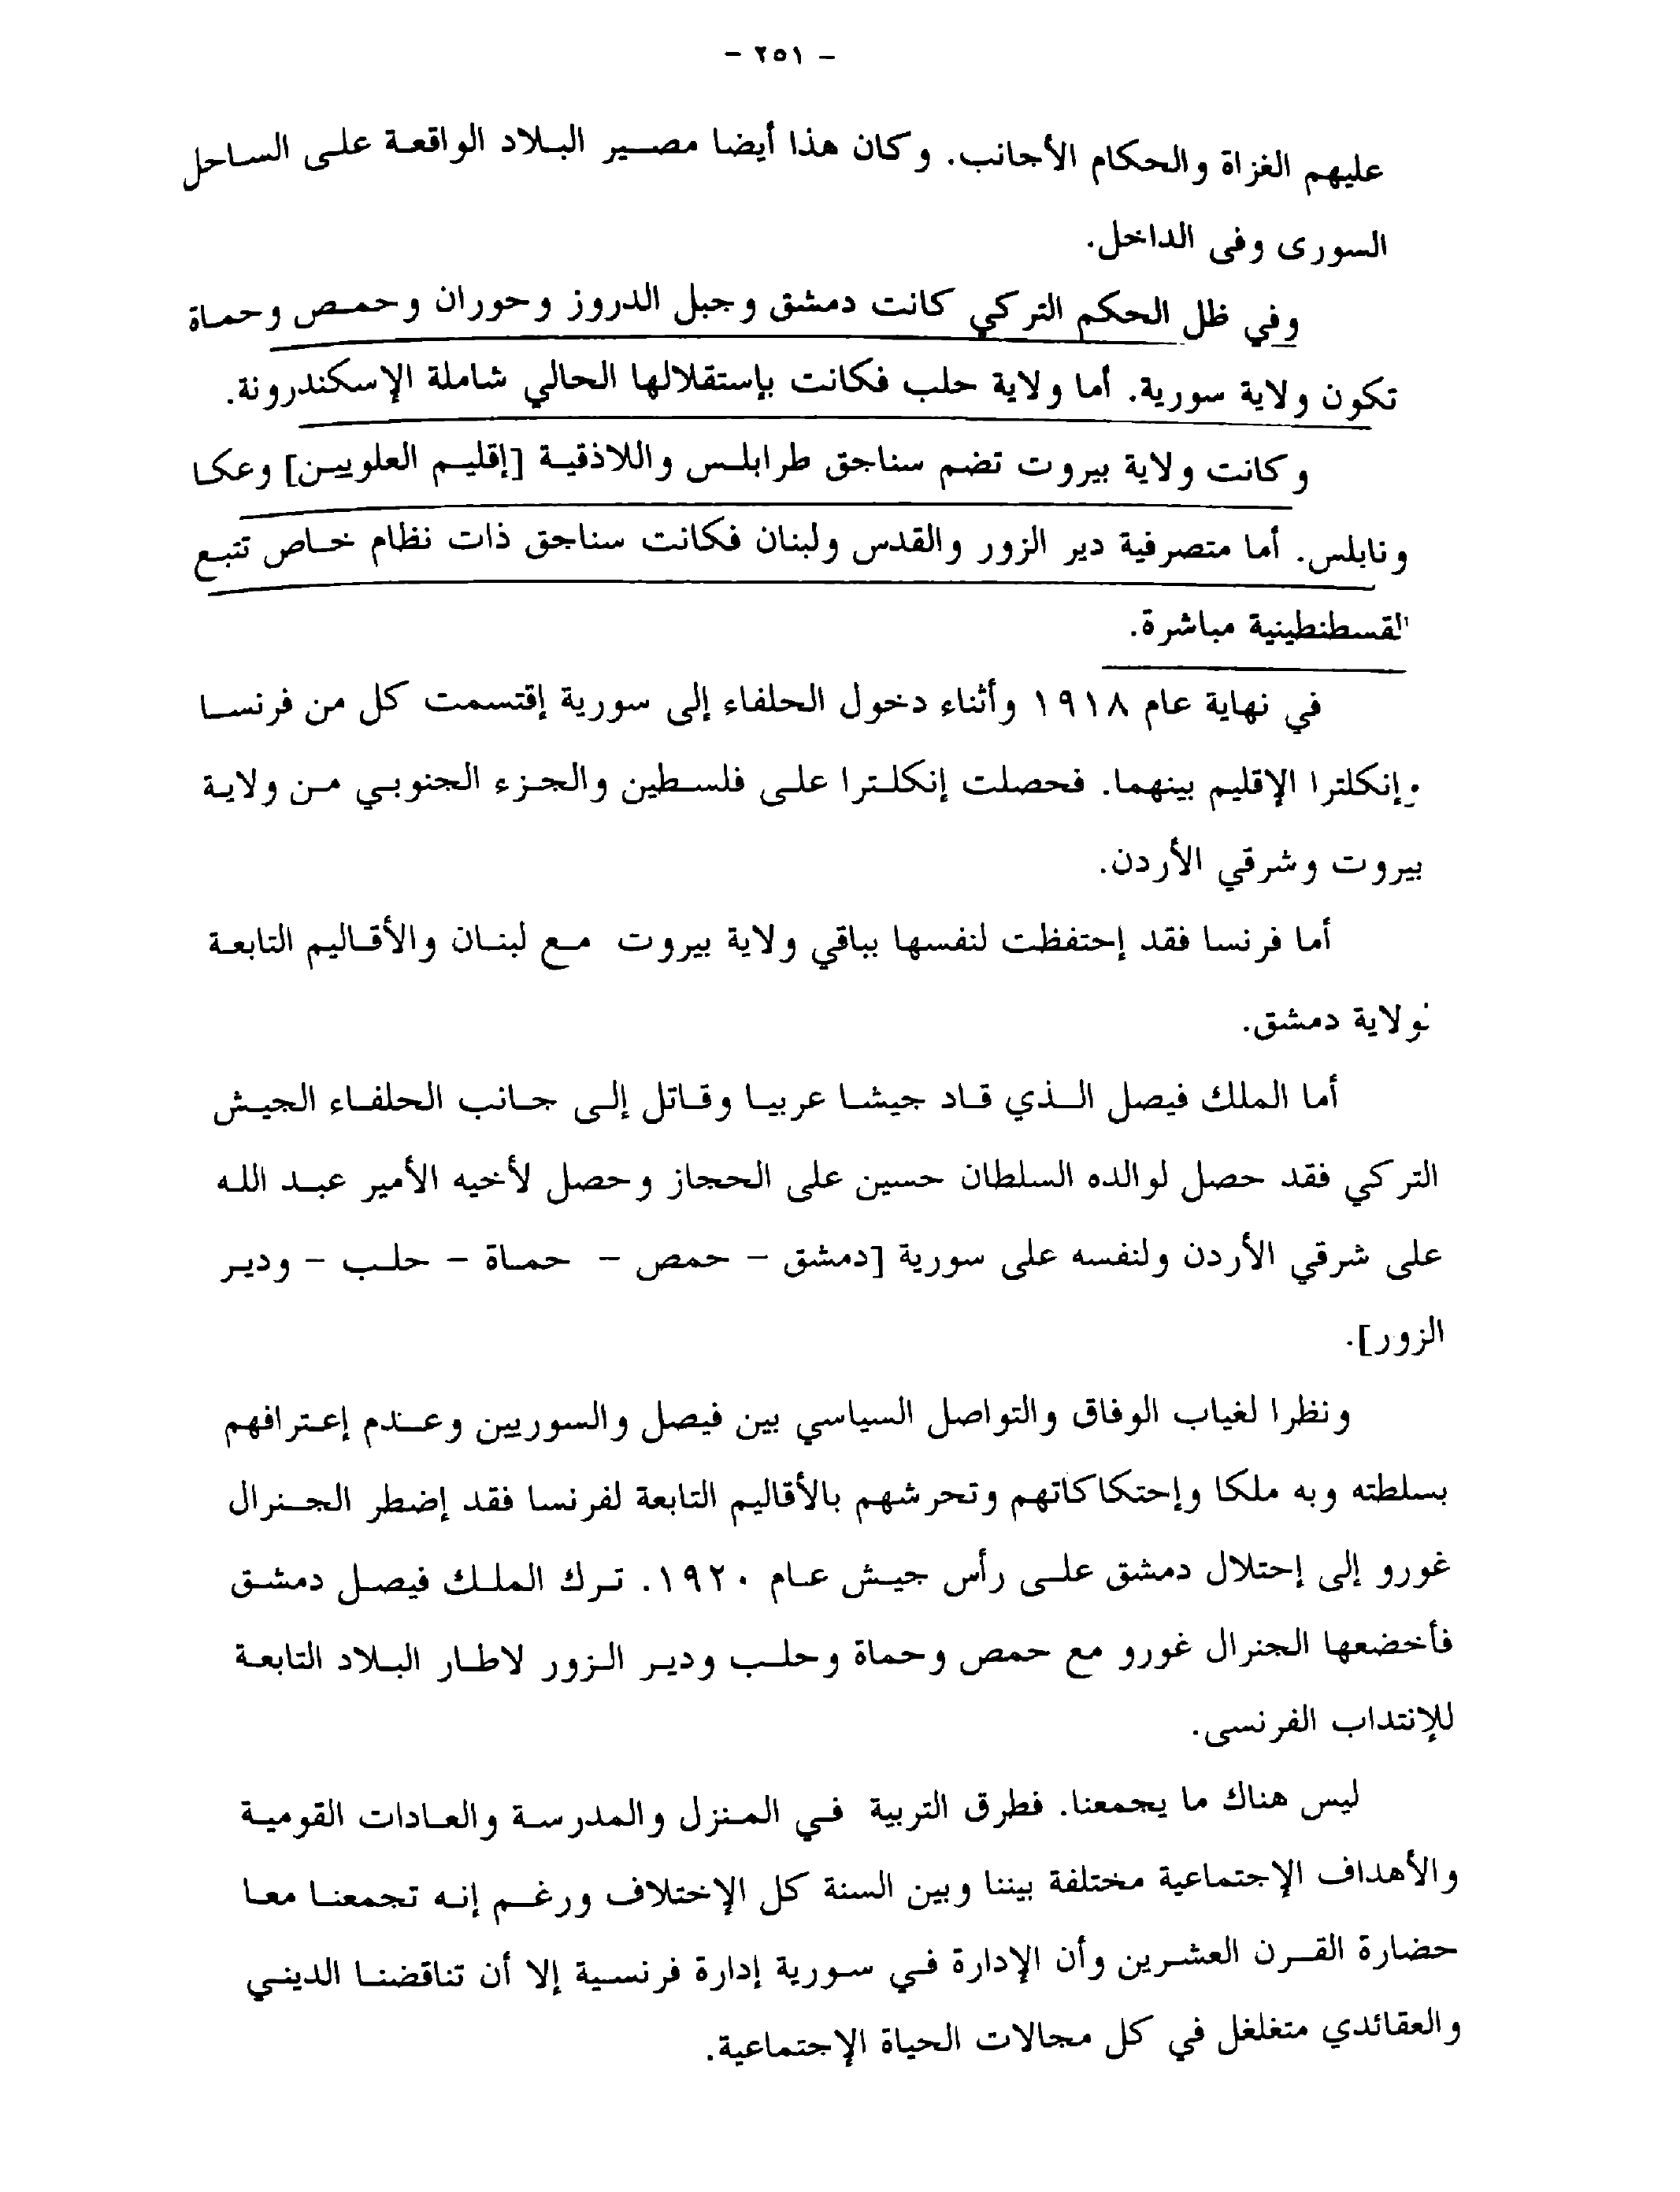 - ٢٥١ -
عليهم الغزاة والحكام الأجانب. وكان هذا أيضا مصير البلاد الواقعة على الساحل
السورى وفى الداخل.
وفي ظل الحكم التركي كانت دمشق وجبل الدروز وحوران وحمص وحماة
تكون ولاية سورية. أما ولاية حلب فكانت بإستقلالها الحالي شاملة الإسكندرونة.
وكانت ولاية بيروت تضم سناجق طرابلس واللاذقية [إقليم العلويين] وعكا
ونابلس. أما متصرفية دير الزور والقدس ولبنان فكانت سناجق ذات نظام خاص تتبع
القسطنطينية مباشرة.
في نهاية عام ١٩١٨ وأثناء دخول الحلفاء إلى سورية إقتسمت كل من فرنسا
وإنكلترا الإقليم بينهما. فحصلت إنكلترا على فلسطين والجزء الجنوبي من ولاية
بيروت وشرقي الأردن.
أما فرنسا فقد إحتفظت لنفسها بباقي ولاية بيروت مع لبنان والأقاليم التابعة
لولاية دمشق.
أما الملك فيصل الذي قاد جيشا عربيا وقاتل إلى جانب الحلفاء الجيش
التركي فقد حصل لوالده السلطان حسين على الحجاز وحصل لأخيه الأمير عبد الله
على شرقي الأردن ولنفسه على سورية [دمشق - حمص - حماة - حلب - ودير
الزور].
ونظرا لغياب الوفاق والتواصل السياسي بين فيصل والسوريين وعدم إعترافهم
بسلطته وبه ملكا وإحتكاكاتهم وتحرشهم بالأقاليم التابعة لفرنسا فقد إضطر الجنرال
غورو إلى إحتلال دمشق على رأس جيش عام ١٩٢٠. ترك الملك فيصل دمشق
فأخضعها الجنرال غورو مع حمص وحماة وحلب ودير الزور لاطار البلاد التابعة
للإنتداب الفرنسى.
ليس هناك ما يجمعنا. فطرق التربية في المنزل والمدرسة والعادات القومية
والأهداف الإجتماعية مختلفة بيننا وبين السنة كل الإختلاف ورغم إنه تجمعنا معا
حضارة القرن العشرين وأن الإدارة في سورية إدارة فرنسية إلا أن تناقضنا الديني
والعقائدي متغلغل في كل مجالات الحياة الإجتماعية.